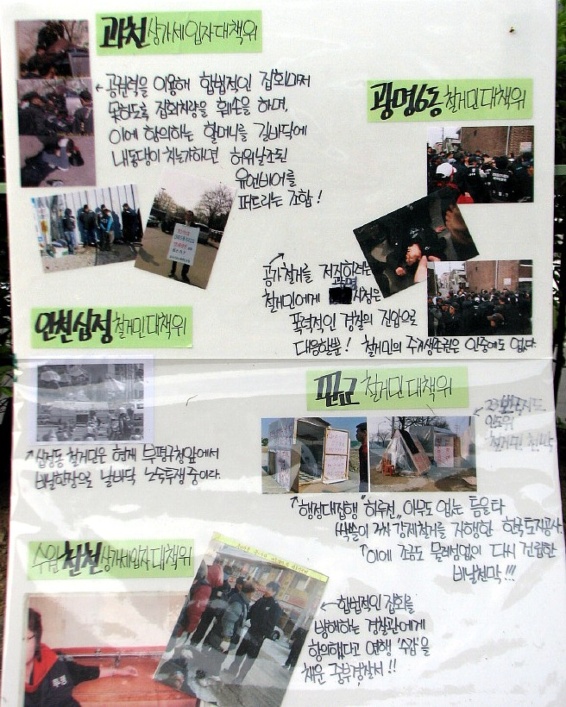 과천 상가세입자대책위
공권력을 이용해 합법적인 집회마저
못하도록 집회차량을 훼손을 하며,
이에 항의하는 할머니를 길바닥에
내동댕이
허위날조된
유언비어를
퍼뜨리는 조합!
광명6동 철거민대책위
공가철거를 저지하려는
철거민에게 광명시청은
폭력적인 경찰의 진압으로
대응할뿐! 철거민의 주거생존권은 안중에도 없다
인천삼정 철거민대책위
철거민은 현재 부평구청앞에서
비닐한장으로 날바닥 노숙투쟁중이다.
판교 철거민대책위
철거민 천막
"행정대집행" 하루전,, 아무도 없는 틈을타
강제철거를 자행한 한국토지공사
이에 조금도 물러섬없이 다시 건립한
비닐천막!!!
수원천천 상가세입자대책위
합법적인 집회를
방해하는 경찰관에게
항의했다고 여행 '수갑'을
채운 중부경찰서!!